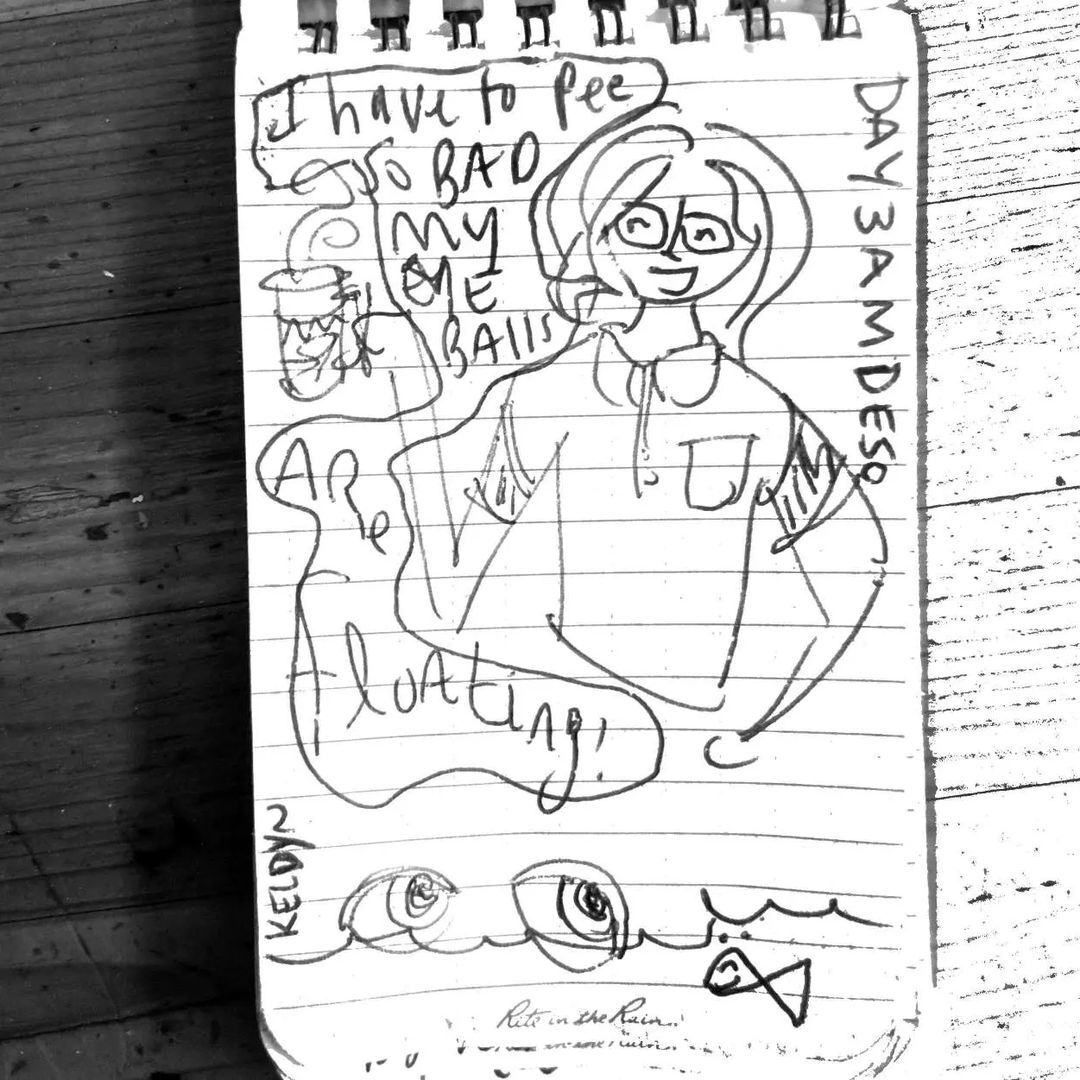 I have to Pee
so BAD
My
EYE
BAllS
ARe
Floating!
DAY 3 AM DESQ
KELDYN
Rite in the Rain